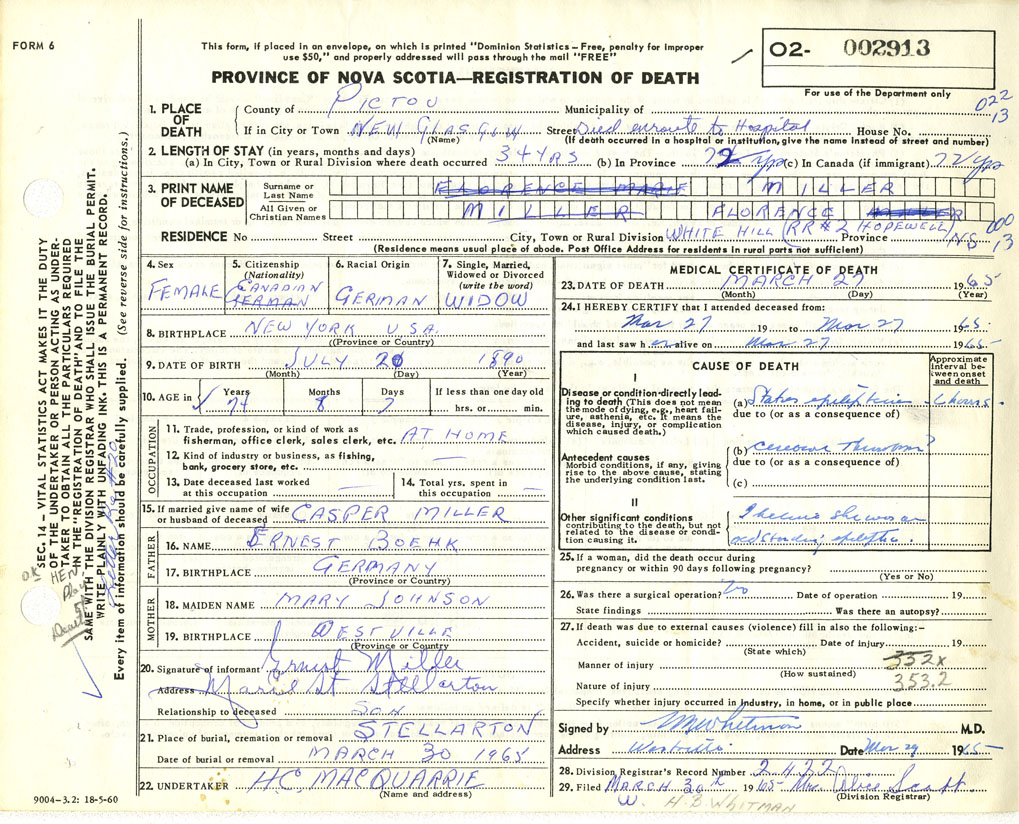 FORM 6
This form, if placed in an envelope, on which is printed "Dominion Statistics – Free, penalty for improper
use $50," and properly addressed will pass through the mail "FREE"
O2- 002913
For use of the Department only
PROVINCE OF NOVA SCOTIA—REGISTRATION OF DEATH
022
13
1. PLACE OF DEATH
County of PICTOU Municipality of
If in City or Town NEW GLASGOW Street Died enroute to Hospital House No.
(Name) (If death occurred in a hospital or institution, give the name instead of street and number)
2. LENGTH OF STAY (in years, months and days)
(a) In City, Town or Rural Division where death occurred 34 YRS (b) In Province 72 yrs (c) In Canada (if immigrant) 72 yrs
3. PRINT NAME OF DECEASED
Surname or Last Name FLORENCE MARIE MILLER
All Given or Christian Names MILLER FLORENCE
000
13
RESIDENCE No Street City, Town or Rural Division WHITE HILL (RR#2 HOPEWELL) Province NS
(Residence means usual place of abode. Post Office Address for residents in rural parts not sufficient)
4. Sex FEMALE
5. Citizenship (Nationality) CANADIAN GERMAN
6. Racial Origin GERMAN
7. Single, Married, Widowed or Divorced (write the word) WIDOW
8. BIRTHPLACE NEW YORK USA.
(Province or Country)
9. DATE OF BIRTH JULY 20 1890
(Month) (Day) (Year)
10. AGE in Years 74 Months 8 Days 7 If less than one day old hrs. or min.
OCCUPATION
11. Trade, profession, or kind of work as fisherman, office clerk, sales clerk, etc. AT HOME
12. Kind of industry or business, as fishing, bank, grocery store, etc. —
13. Date deceased last worked at this occupation —
14. Total yrs. spent in this occupation —
15. If married give name of wife or husband of deceased CASPER MILLER
FATHER
16. NAME ERNEST BOEHK
17. BIRTHPLACE GERMANY
(Province or Country)
MOTHER
18. MAIDEN NAME MARY JOHNSON
19. BIRTHPLACE WESTVILLE
(Province or Country
20. Signature of informant Ernest Miller
Address Marie St Stellarton
Relationship to deceased Son
21. Place of burial, cremation or removal STELLARTON
Date of burial or removal MARCH 30 1965
22. UNDERTAKER H.C. MACQUARRIE
(Name and address)
9004-3.2: 18-5-60
MEDICAL CERTIFICATE OF DEATH
23. DATE OF DEATH MARCH 27 1965
(Month) (Day) (Year)
24. I HEREBY CERTIFY that I attended deceased from:
Mar 27 19 to Mar 27 1965
and last saw her alive on Mar 27 1965
CAUSE OF DEATH
Approximate interval between onset and death
I
Disease or condition directly leading to death (This does not mean the mode of dying, e.g., heart failure, asthenia, etc. It means the disease, injury, or complication which caused death.)
(a) Status epilepticus 6 hours
due to (or as a consequence of)
Antecedent causes
Morbid conditions, if any, giving rise to the above cause, stating the underlying condition last.
(b) cerebral Thrombosis?
due to (or as a consequence of)
(c)
II
Other significant conditions contributing to the death, but not related to the disease or condition causing it.
I believe she was an
old standing epileptic.
25. If a woman, did the death occur during
pregnancy or within 90 days following pregnancy?
(Yes or No)
26. Was there a surgical operation? No Date of operation 19
State findings Was there an autopsy?
27. If death was due to external causes (violence) fill in also the following:–
Accident, suicide or homicide? Date of injury 19
(State which)
Manner of injury 332x
(How sustained)
Nature of injury 353.2
Specify whether injury occurred in industry, in home, or in public place
Signed by Whitman M.D.
Address Westville Date Mar 29 1965
28. Division Registrar's Record Number 2422
29. Filed MARCH 30th 1965 Mrs. Alice Scott
(Division Registrar)
W. H.B. WHITMAN
SEC. 14 – VITAL STATISTICS ACT MAKES IT THE DUTY
OF THE UNDERTAKER OR PERSON ACTING AS UNDER-
TAKER TO OBTAIN ALL THE PARTICULARS REQUIRED
IN THE "REGISTRATION OF DEATH" AND TO FILE THE
SAME WITH THE DIVISION REGISTRAR WHO SHALL ISSUE THE BURIAL PERMIT.
WRITE PLAINLY WITH UNFADING INK. THIS IS A PERMANENT RECORD.
Every item of information should be carefully supplied. (See reverse side for instructions.)
O.K.
Death